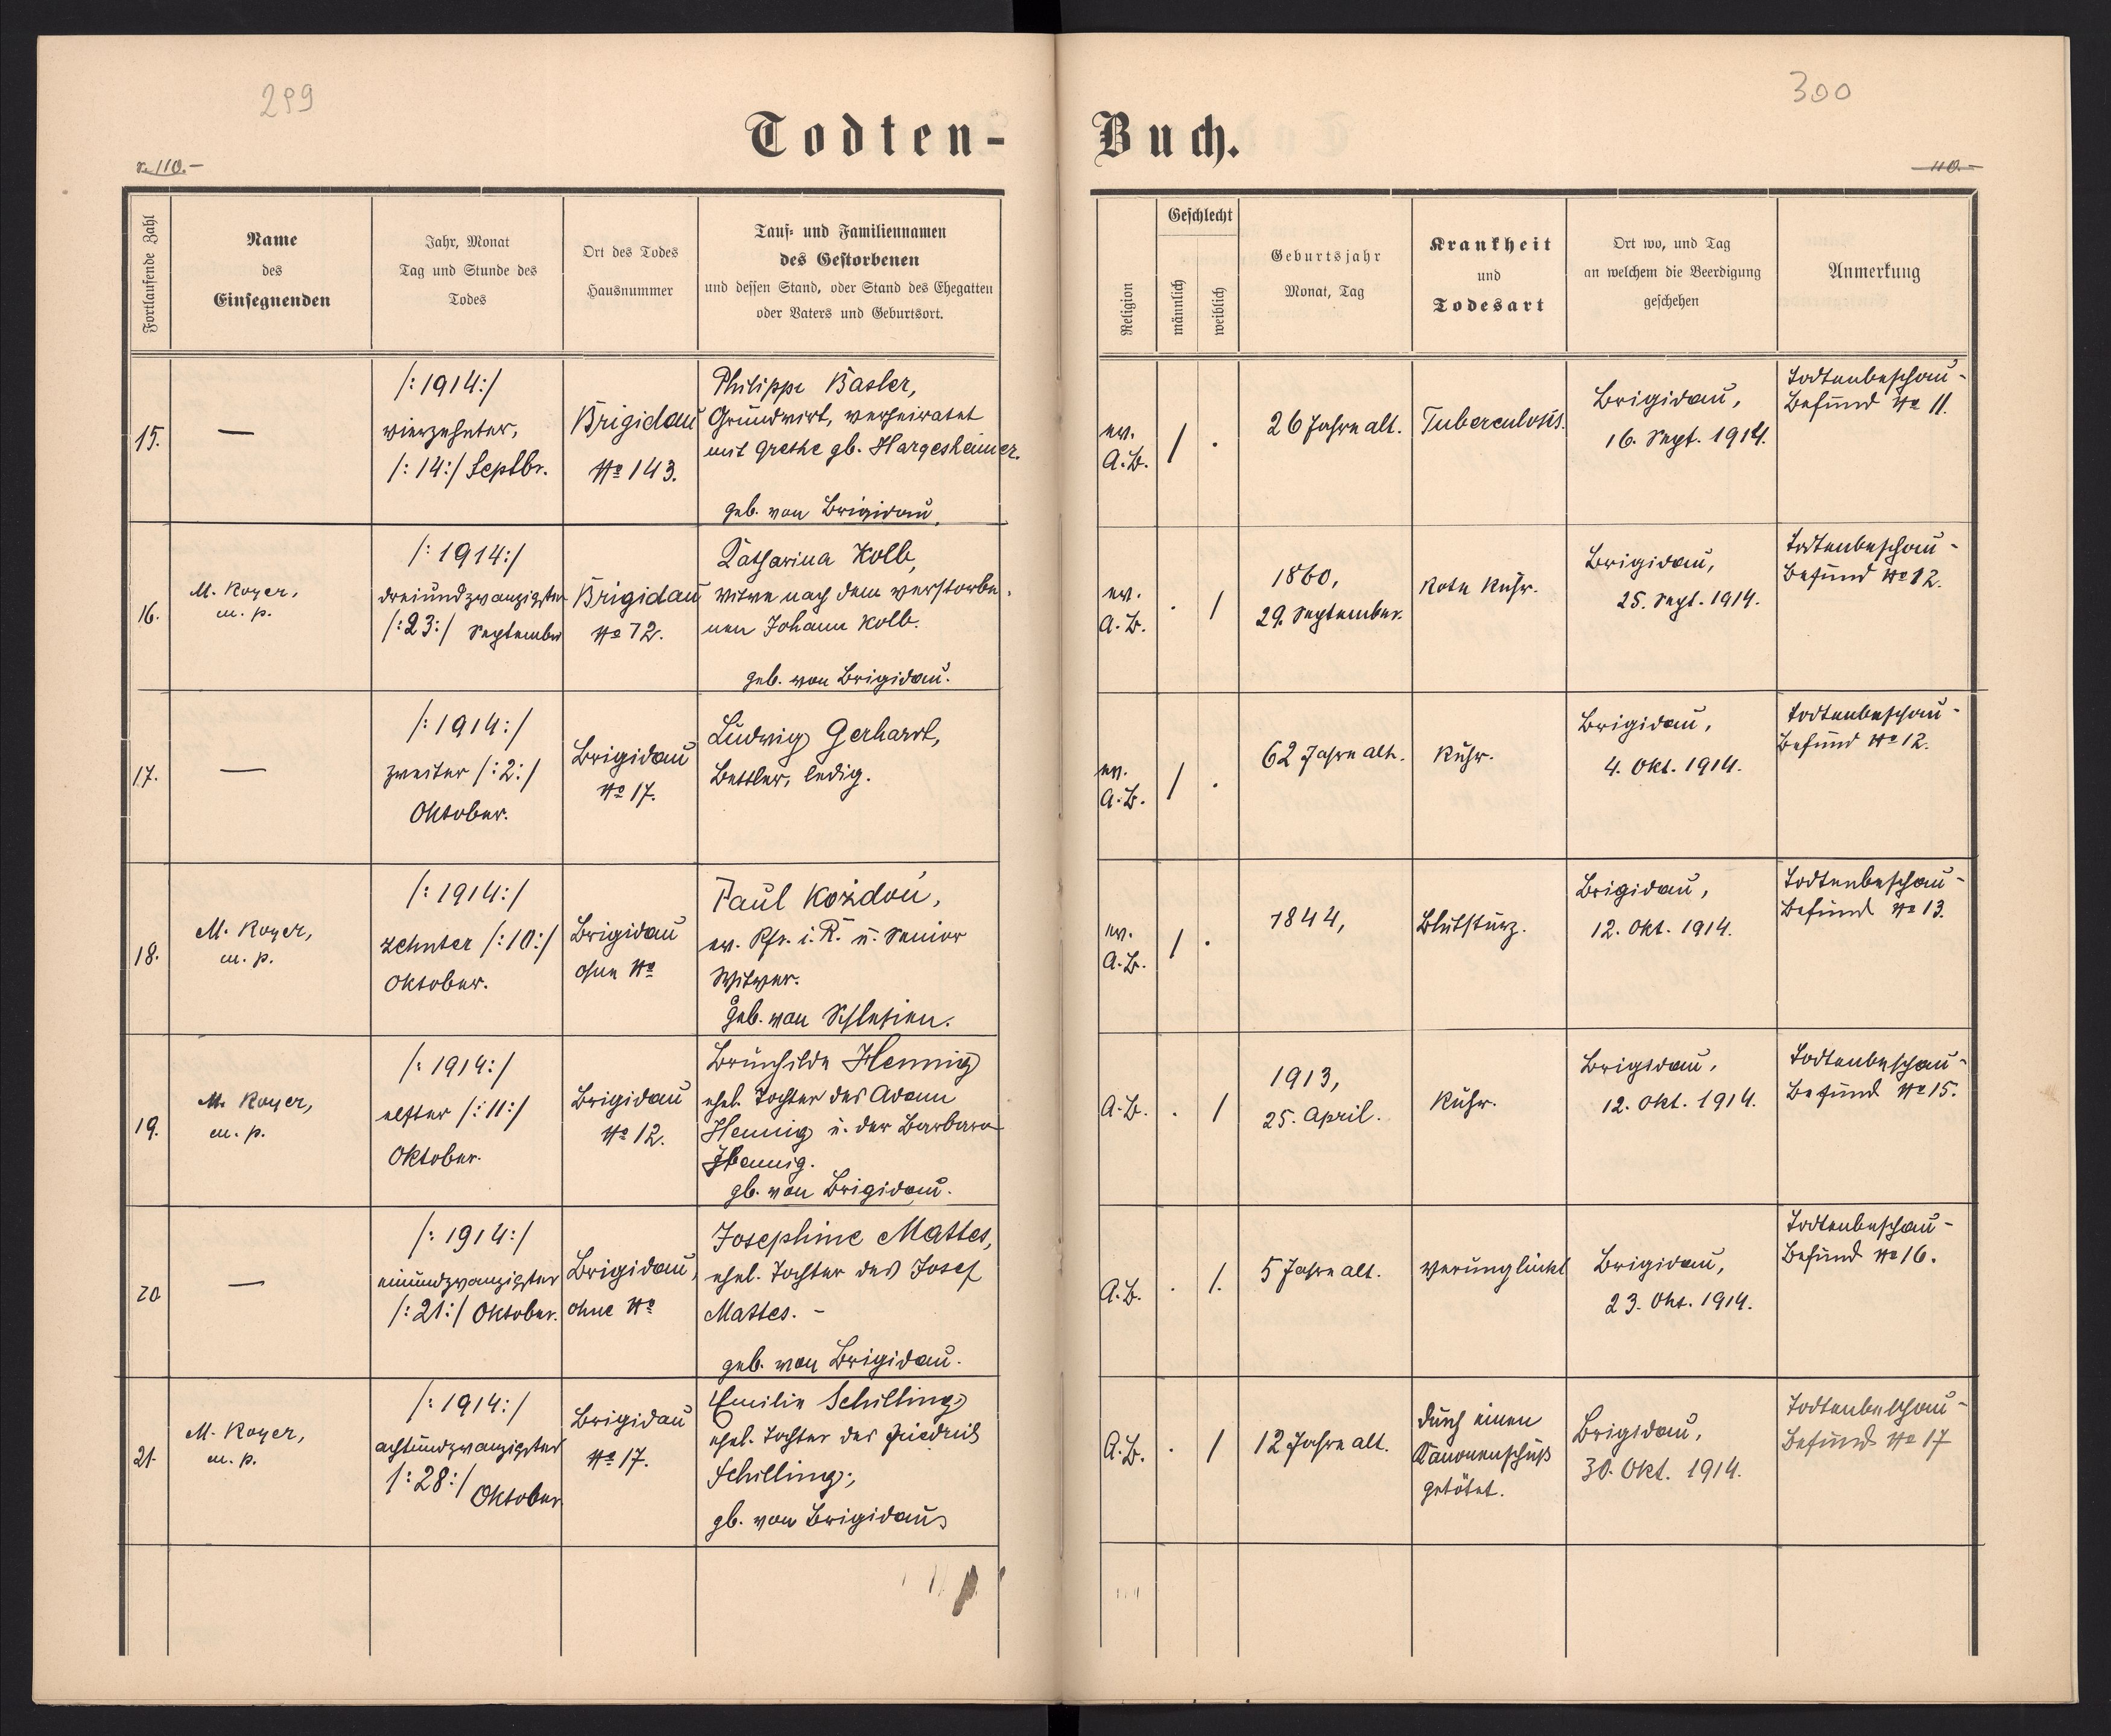 299
300
Todten-
Buch.
v. 110.-
110.-
Fortlaufende Zahl
Name
des
Einsegnenden
Jahr, Monat
Tag und Stunde des
Todes
Ort des Todes
Hausnummer
Tauf- und Familiennamen
des Gestorbenen
und dessen Stand, oder Stand des Ehegatten
oder Vaters und Geburtsort.
Religion
Geschlecht
männlich
weiblich
Geburtsjahr
Monat, Tag
Krankheit
und
Todesart
Ort wo, und Tag
an welchem die Beerdigung
geschehen
Anmerkung
15.
—
/: 1914 :/
vierzehnter,
/: 14 :/ Septbr.
Brigidau
No 143.
Philipp Basler,
Grundwirt, verheiratet
mit Grethe gb. Hargesheimer.
geb. von Brigidau.
ev.
A.B.
/ .
26 Jahre alt.
Tuberculosis.
Brigidau,
16. Sept. 1914.
Todtenbeschau-
Befund No 11.
16.
M. Royer,
m. p.
/: 1914 :/
dreiundzwanzigster
/: 23 :/ September
Brigidau
No 72.
Katharina Kolb,
Witwe nach dem verstorbe-
nen Johann Kolb.
geb. von Brigidau.
ev.
A.B.
. /
1860,
29. September.
Rote Ruhr.
Brigidau,
25. Sept. 1914.
Todtenbeschau-
Befund No 12.
17.
—
/: 1914 :/
zweiter /: 2 :/
Oktober.
Brigidau
No 17.
Ludwig Gerhart,
Bettler, ledig.
ev.
A.B.
/ .
62 Jahre alt.
Ruhr.
Brigidau,
4. Okt. 1914.
Todtenbeschau-
Befund No 12.
18.
M. Royer,
m. p.
/: 1914 :/
zehnter /: 10 :/
Oktober.
Brigidau
ohne No
Paul Koždoń,
ev. Pfr. i. R. u. Senior
Witwer.
geb. von Schlesien.
ev.
A.B.
/ .
1844,
Blutsturz.
Brigidau,
12. Okt. 1914.
Todtenbeschau-
Befund No 13.
19.
M. Royer,
m. p.
/: 1914 :/
elfter /: 11 :/
Oktober.
Brigidau
No 12.
Brünhilde Hennig
ehel. Tochter des Adam
Hennig u. der Barbara
Hennig.
gb. von Brigidau.
A.B.
. /
1913,
25. April.
Ruhr.
Brigidau,
12. Okt. 1914.
Todtenbeschau-
Befund No 15.
20
—
/: 1914 :/
einundzwanzigster
/: 21 :/ Oktober.
Brigidau,
ohne No
Josephine Mattes,
ehel. Tochter des Josef
Mattes. -
geb. von Brigidau.
A.B.
. /.
5 Jahre alt.
Verunglückt
Brigidau,
23. Okt. 1914.
Todtenbeschau-
Befund No 16.
21.
M. Royer,
m. p.
/: 1914 :/
achtundzwanzigster
/: 28 :/ Oktober
Brigidau
No 17.
Emilie Schilling,
ehel. Tochter des Friedrich
Schilling;
gb. von Brigidau
A.B.
. /
12 Jahre alt.
durch einen
Kanonenschuß
getötet.
Brigidau,
30. Okt. 1914.
Todtenbeschau-
Befund No 17